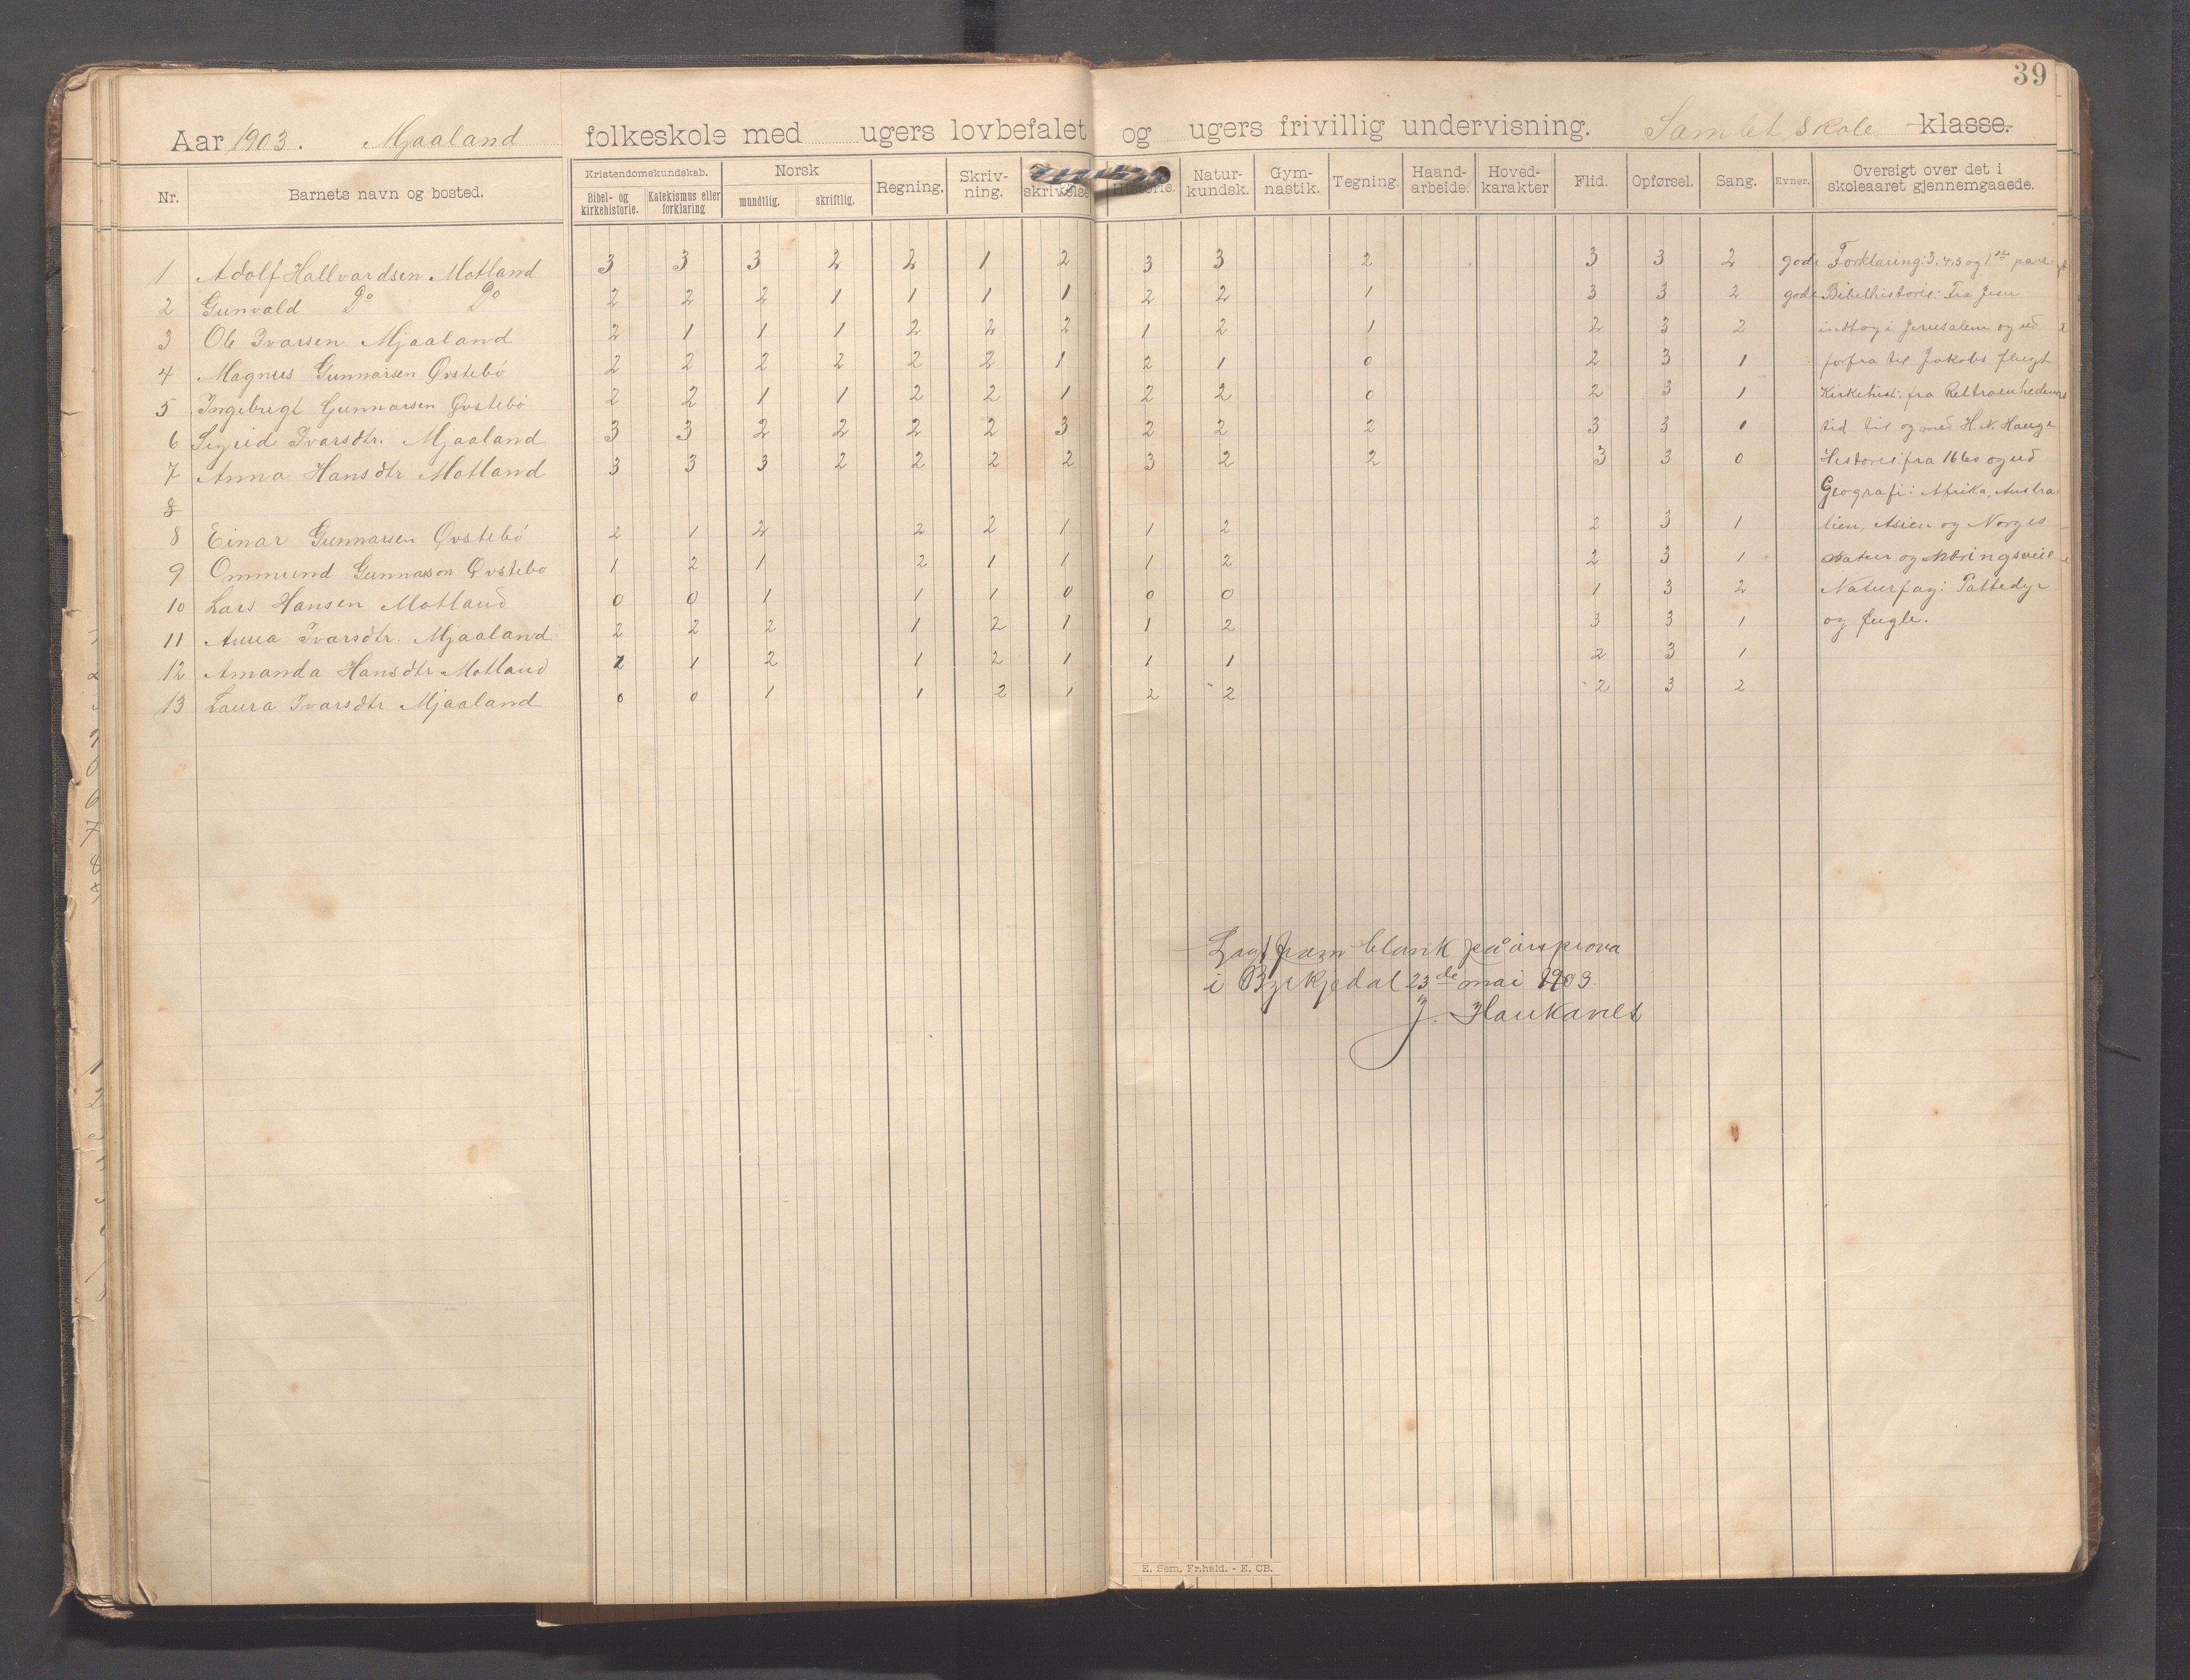 39
Aar 1903. Mjaaland folkeskole med ugers lovbefalet og ugers frivillig undervisning. Samlet skole klasse.
Nr. Barnets navn og bosted. Kristendomskundskab. Bibel- og kirkehistorie. Katekismus eller forklaring Norsk mundtlig. skriftlig. Regning. Skriv-ning. skrivelse Historie. Natur-kundsk. Gym-nastik. Tegning. Haand-arbeide. Hoved-karakter Flid. Opførsel. Sang. Evner. Oversigt over det i skoleaaret gjennemgaaede.
1 Adolf Hallvardsen Motland 3 3 3 2 2 1 2 3 3 2 3 3 2 gode Forklaring: 3. 4. 5 og 1ste part
2 Gunvald Do Do 2 2 2 1 1 1 1 2 2 1 3 3 2 gode Bibelhistorie: Fra Jesu
3 Ole Ivarsen Mjaaland 2 1 1 1 2 2 2 1 2 1 2 3 2 indtog i Jerusalem og ud
4 Magnus Gunnarsen Øvstebö 2 2 2 2 2 2 1 2 1 0 2 3 1 forfra til Jakobs flugt
5 Ingebrigt Gunnarsen Øvstebö 2 2 1 1 2 2 1 2 2 0 2 3 1 Kirkehist: fra
6 Sigrid Ivarsdtr. Mjaaland 3 3 2 2 2 2 3 2 2 2 3 3 1 tid til og med H. N. Hauge
7 Anna Hansdtr Motland 3 3 3 2 2 2 2 3 2 2 3 3 0 Historie: fra 1660 og ud
8 Geografi: Afrika, Austra
8 Einar Gunnarsen Øvstebö 2 1 2 2 2 1 1 2 2 3 1 lien, Asien og Norges
9 Ommund Gunnarson Øvstebo 1 2 1 2 1 1 1 2 2 3 1 Natur og Næringsveie
10 Lars Hansen Motland 0 0 1 1 1 0 0 0 1 3 2 Naturfag: Pattedyr
11 Anna Ivarsdtr. Mjaaland 2 2 2 1 2 1 1 2 3 3 1 og fugle.
12 Amanda Hansdtr Motland 1 1 2 1 2 1 1 1 2 3 1
13 Laura Ivarsdtr Mjaaland 0 0 1 1 2 1 2 2 2 3 2
Lagt fram blank på årsprova
i Byrkjedal 23de mai 1903.
J. Haukanes
E. Sem, Fr.hald. - E. CB.